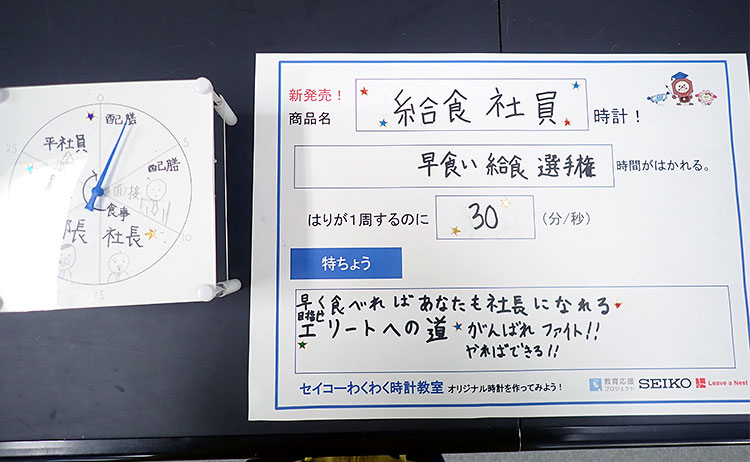 0
配膳
平社員
25
5
配膳
面接
食事
長
社長
10
15
新発売！
商品名
給食 社員
時計！
早食い 給食 選手権
時間がはかれる。
はりが１周するのに
30
（分/秒）
特ちょう
早く食べればあなたも社長になれる
目指せ
エリートへの道
がんばれ ファイト!!
やればできる!!
セイコーわくわく時計教室 オリジナル時計を作ってみよう！
教育応援
プロジェクト
SEIKO
Leave a Nest